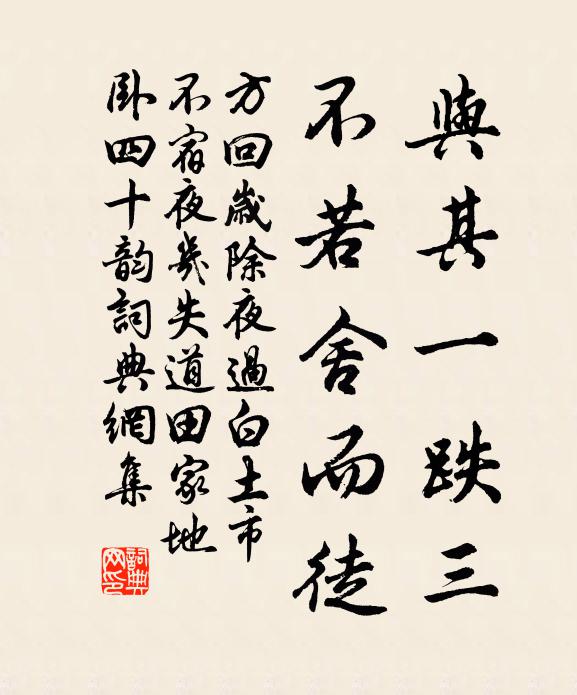 與其一跌三
不若舍而徒
方回歲除夜過白土市
不宿夜幾失道田家地
卧四十韵詞典網集
詞典
网印